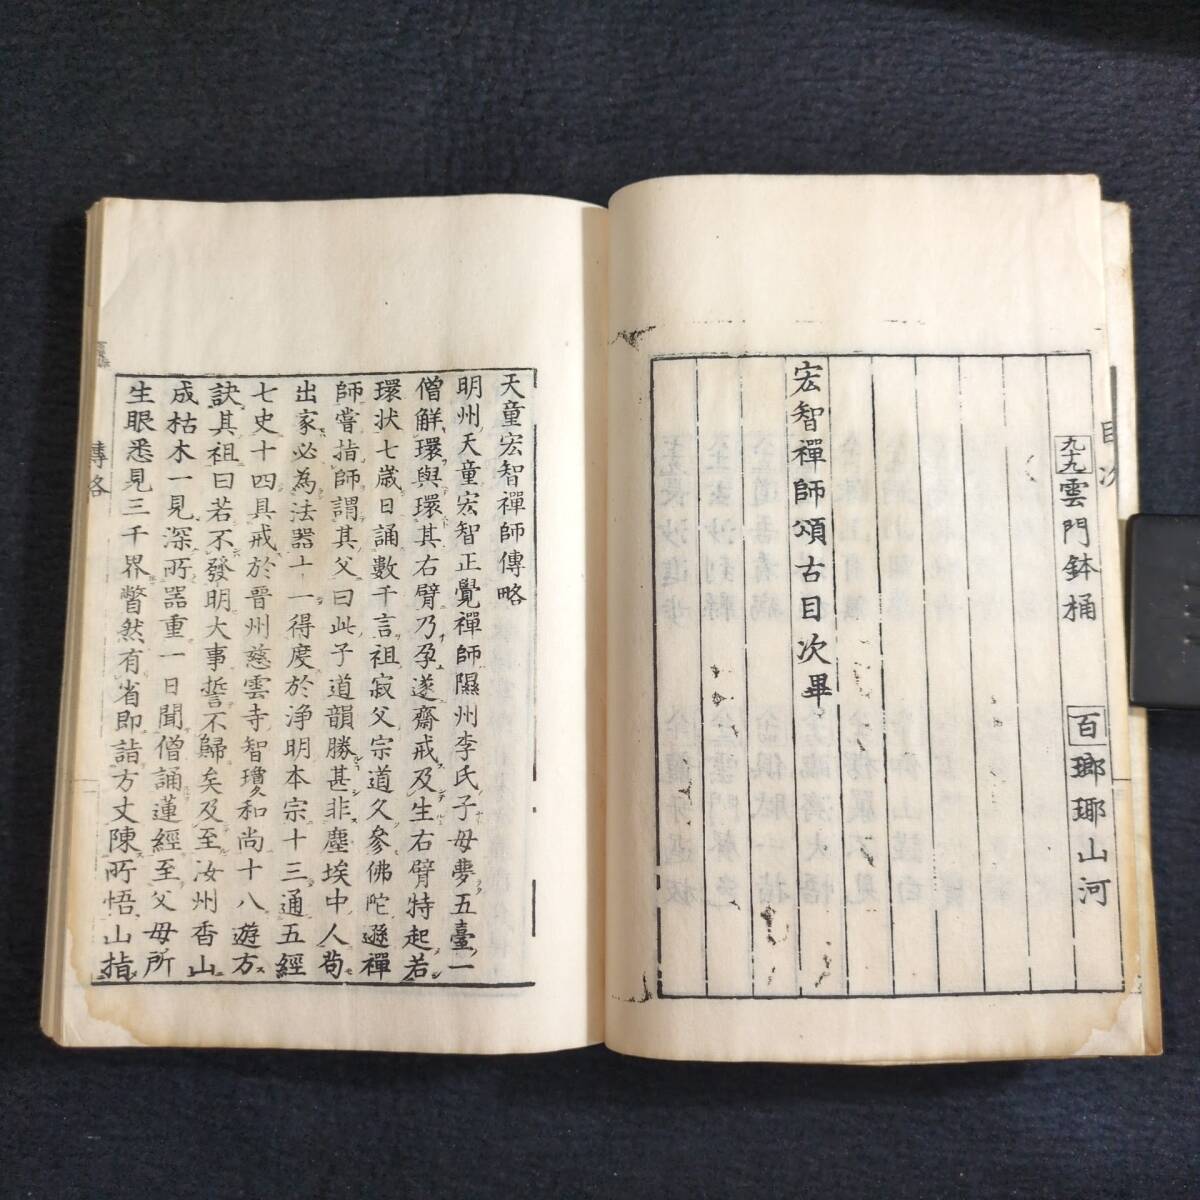 目次
九十九雲門鉢桶 百瑯琊山河
宏智禪師頌古目次畢
天童宏智禪師傳略
明州天童宏智正覺禪師隰州李氏子母夢五臺一
僧解環與環其右臂乃孕遂齋戒及生右臂特起若
環状七歲日誦數千言祖寂父宗道久參佛陀遜禪
師嘗指師謂其父曰此子道韻勝甚非塵埃中人苟
出家必為法器十一得度於淨明本宗十三通五經
七史十四具戒於晉州慈雲寺智瓊和尚十八遊方
訣其祖曰若不發明大事誓不歸矣及至汝州香山
成枯木一見深所器重一日聞僧誦蓮經至父母所
生眼悉見三千界瞥然有省即詣方丈陳所悟山指
傳略